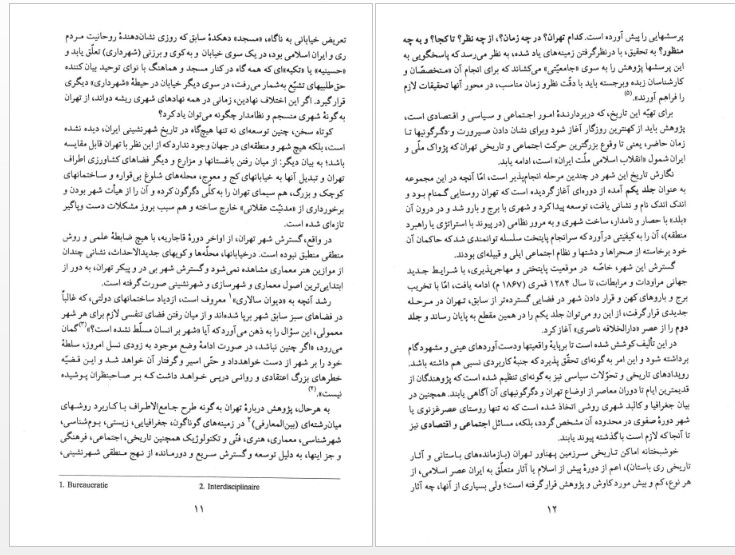 تعریض خیابانی به ناگاه، «مسجد» دهکدهٔ سابق که روزی نشان‌دهندهٔ روحانیت مردم
ری و ایران اسلامی بود، در یک سوی خیابان و به‌کوی و برزنی (شهرداری) تعلّق یابد و
«حسینیه» یا «تکیه»ای که همه گاه در کنار مسجد و هماهنگ با نوای توحید بیان کننده
حق‌طلبیهای تشیّع به‌شمار می‌رفت، در سوی دیگر خیابان در حیطهٔ «شهرداری» دیگری
قرار گیرد. اگر این اختلاف نهادین، زمانی در همه نهادهای شهری ریشه دواند، از تهران
به گونهٔ شهری منسجم و نظامدار چگونه می‌توان یاد کرد؟
کوتاه سخن، چنین توسعه‌ای نه تنها هیچ‌گاه در تاریخ شهرنشینی ایران، دیده نشده
است، بلکه هیچ شهر و منطقه‌ای در جهان وجود ندارد که از این نظر با تهران قابل مقایسه
باشد؛ به بیان دیگر: از میان رفتن باغستانها و مزارع و دیگر فضاهای کشاورزی اطراف
تهران و تبدیل آنها به خیابانهای کج و معوج، محله‌های شلوغ بی‌قواره و ساختمانهای
کوچک و بزرگ، هم سیمای تهران را به‌کلّی دگرگون کرده و آن را از هیأت شهر بودن و
برخورداری از «مدنیّت عقلانی» خارج ساخته و هم سبب بروز مشکلات دست وپاگیر
تازه‌ای شده است.
در واقع، گسترش شهر تهران، از اواخر دورهٔ قاجاریه، با هیچ ضابطهٔ علمی و روش
منطقی منطبق نبوده است. درخیابانها، محلّه‌ها و کویهای جدیدالاحداث، نشانی چندان
از موازین هنر معماری مشاهده نمی‌شود و گسترش شهر بی در و پیکر تهران، به دور از
ابتدایی‌ترین اصول معماری و شهرسازی و شهرنشینی صورت گرفته است.
رشد آنچه به «دیوان سالاری»۱ معروف است، ازدیاد ساختمانهای دولتی، که غالباً
در فضاهای سبز سابق شهر برپا شده‌اند و از میان رفتن فضای تنفسی لازم برای هر شهر
معمولی، این سؤال را به ذهن می‌آورد که آیا «شهر بر انسان مسلّط نشده است؟»(۳) گمان
می‌رود، «اگر چنین نباشد، در صورت ادامهٔ وضع موجود به زودی نسل امروز، سلطهٔ
خود را بر شهر از دست خواهدداد و حتّی اسیر وگرفتار آن خواهد شد و این قضیّه
خطرهای بزرگ اعتقادی و روانی درپی خواهد داشت که بر صاحبنظران پوشیده
نیست».(۴)
به هرحال، پژوهش دربارهٔ تهران به گونه طرح جامع‌الاطراف با کاربرد روشهای
میان‌رشته‌ای (بین‌المعارفی)۲ در زمینه‌های گوناگون، جغرافیایی، زیستی، بوم‌شناسی،
شهرشناسی، معماری، هنری، فنّی و تکنولوژیک همچنین تاریخی، اجتماعی، فرهنگی
و جز اینها، به دلیل توسعه و گسترش سریع و دورمانده از نهج منطقی شهرنشینی،
1. Bureaucratie
2. Interdisciplinaire
۱۱
پرسشهایی را پیش آورده است. کدام تهران؟ در چه زمان؟، از چه نظر؟ تا کجا؟ و به چه
منظور؟ به تحقیق، با درنظرگرفتن زمینه‌های یاد شده، به نظر می‌رسد که پاسخگویی به
این پرسشها پژوهش را به سوی «جامعیّتی» می‌کشاند که برای انجام آن «متخصّصان و
کارشناسان زبده وبرجسته باید با دقّت نظرو زمان مناسب، در محور آنها تحقیقات لازم
را فراهم آورند».(۵)
برای تهیّه این تاریخ، که دربردارندهٔ امور اجتماعی و سیاسی و اقتصادی است،
پژوهش باید از کهنترین روزگار آغاز شود وبرای نشان دادن صیرورت و دگرگونیها تا
زمان حاضر، یعنی تا وقوع بزرگترین حرکت اجتماعی و تاریخی تهران که پژواک ملّی و
ایران شمول «انقلاب اسلامی ملّت ایران» است، ادامه یابد.
نگارش تاریخ این شهر در چندین مرحله انجام‌پذیر است، امّا آنچه در این مجموعه
به عنوان جلد یکم آمده از دوره‌ای آغاز گردیده است که تهران روستایی گمنام بود و
اندک اندک نام و نشانی یافت، توسعه پیدا کرد و شهری با برج و بارو شد و در درون آن
«بلد» با حصار و نامدار، ساخت شهری و به مرور نظامی (در پیوند با استراتژی یا راهبرد
منطقه)، آن را به‌کیفیتی درآورد که سرانجام پایتخت سلسله توانمندی شد که حاکمان آن
خود برخاسته از صحراها و دشتها و نظام اجتماعی ایلی و قبیله‌ای بودند.
گسترش این شهر، خاصّه در موقعیت پایتختی و مهاجرپذیری، با شرایط جدید
جهانی مراودات و مرابطات، تا سال ۱۲۸۴ قمری (۱۸۶۷ م) ادامه یافت، امّا با تخریب
برج و باروهای کهن و قرار دادن شهر در فضایی گسترده‌تر از سابق، تهران در مرحله
جدیدی قرارگرفت، از این رو می‌توان جلد یکم را در همین مقطع به پایان رساند و جلد
دوم را از عصر «دارالخلافه ناصری» آغاز کرد.
در این تألیف کوشش شده است تا برپایهٔ واقعیتها ودست آوردهای عینی و مشهودگام
برداشته شود و این امر به گونه‌ای تحقّق پذیرد که جنبهٔ کاربردی نسبی هم داشته باشد.
رویدادهای تاریخی و تحوّلات سیاسی نیز به گونه‌ای تنظیم شده است که پژوهندگان از
قدیمترین ایام تا دوران معاصر از اوضاع تهران و دگرگونیهای آن آگاهی یابند. همچنین در
بیان جغرافیا و کالبد شهری روشی اتخاذ شده است که نه تنها روستای عصر غزنوی یا
شهر دورهٔ صفوی در محدوده آن مشخص گردد، بلکه، مسائل اجتماعی و اقتصادی نیز
تا آنجا که لازم است باگذشته پیوند یابند.
خوشبختانه اماکن تاریخی سرزمین پهناور تهران (بازمانده‌های باستانی و آثار
تاریخی ری باستان)، اعم از دورهٔ پیش از اسلام یا آثار متعلّق به ایران عصر اسلامی، از
هر نوع، کم و بیش مورد کاوش و پژوهش قرار گرفته است؛ ولی بسیاری از آنها، چه آثار
۱۲